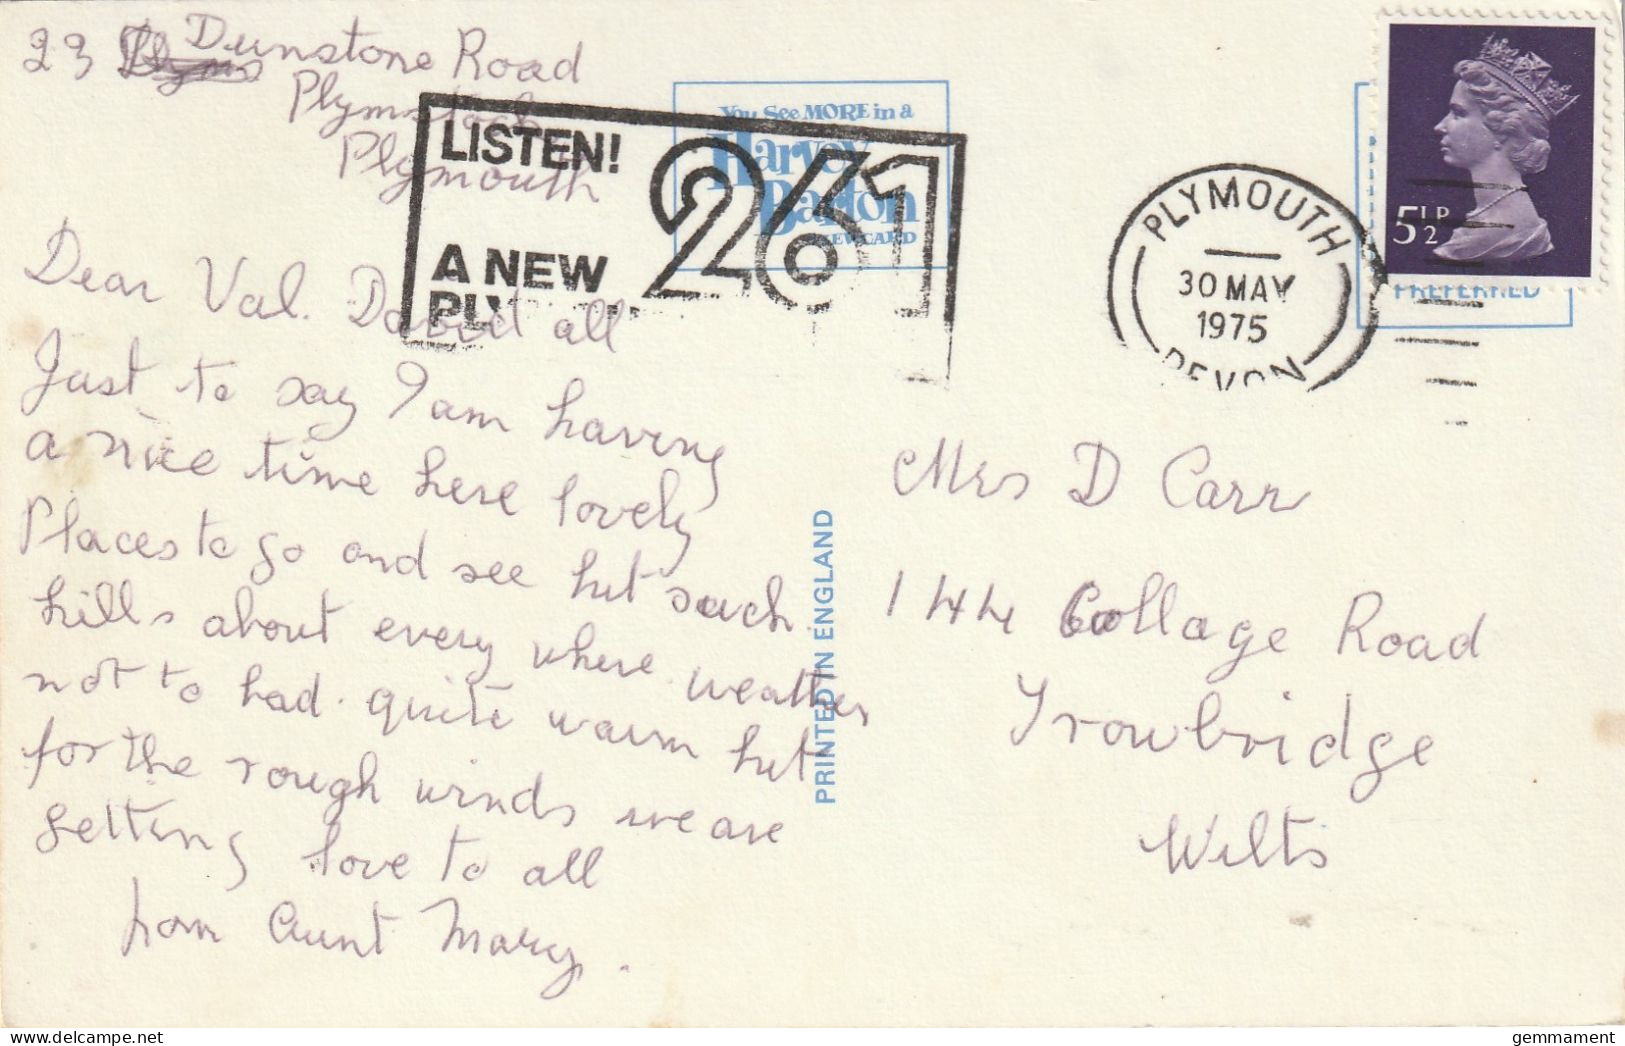 23 Dunstone Road
Plymstock
Plymouth
You See MORE in a
Harvey
Barton
VIEWCARD
LISTEN!
261
A NEW
PLY
PLYMOUTH
30 MAY
1975
DEVON
5½P
PREFERRED
Dear Val. David all
Just to say I am having
a nice time here lovely
Places to go and see but such
hills about every where. weather
not to bad. quite warm but
for the rough winds we are
getting love to all
from Aunt Mary.
PRINTED IN ENGLAND
Mrs D Carr
144 Collage Road
Trowbridge
Wilts
delcampe.net
gemmament